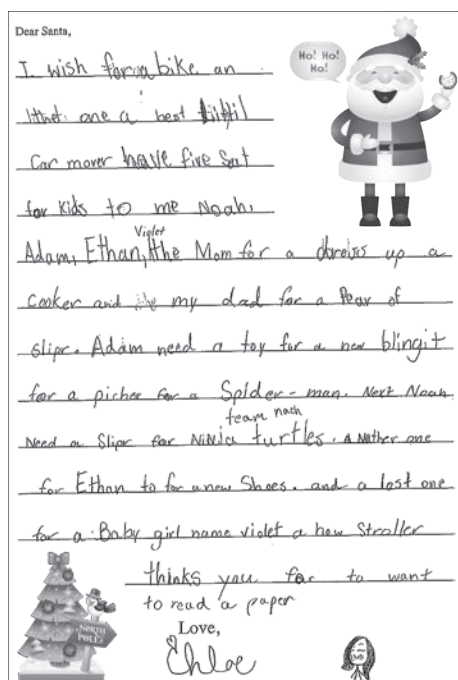 Dear Santa,
Ho! Ho!
Ho!
I wish for a bike an
one a best
Car mover have five Set
for kids to me Noah,
Violet
Adam, Ethan, the Mom for a up a
Cooker and my dad for a Pear of
slipr. Adam need a toy for a new blingit
for a picher for a Spider-man. Next Noah
team nach
Need a Slipr for Ninja turtles. A Nother one
for Ethan to for a new Shoes. and a last one
for a Baby girl name violet a how Stroller
thinks you for to want
to read a paper
NORTH
POLE
Love,
Chloe